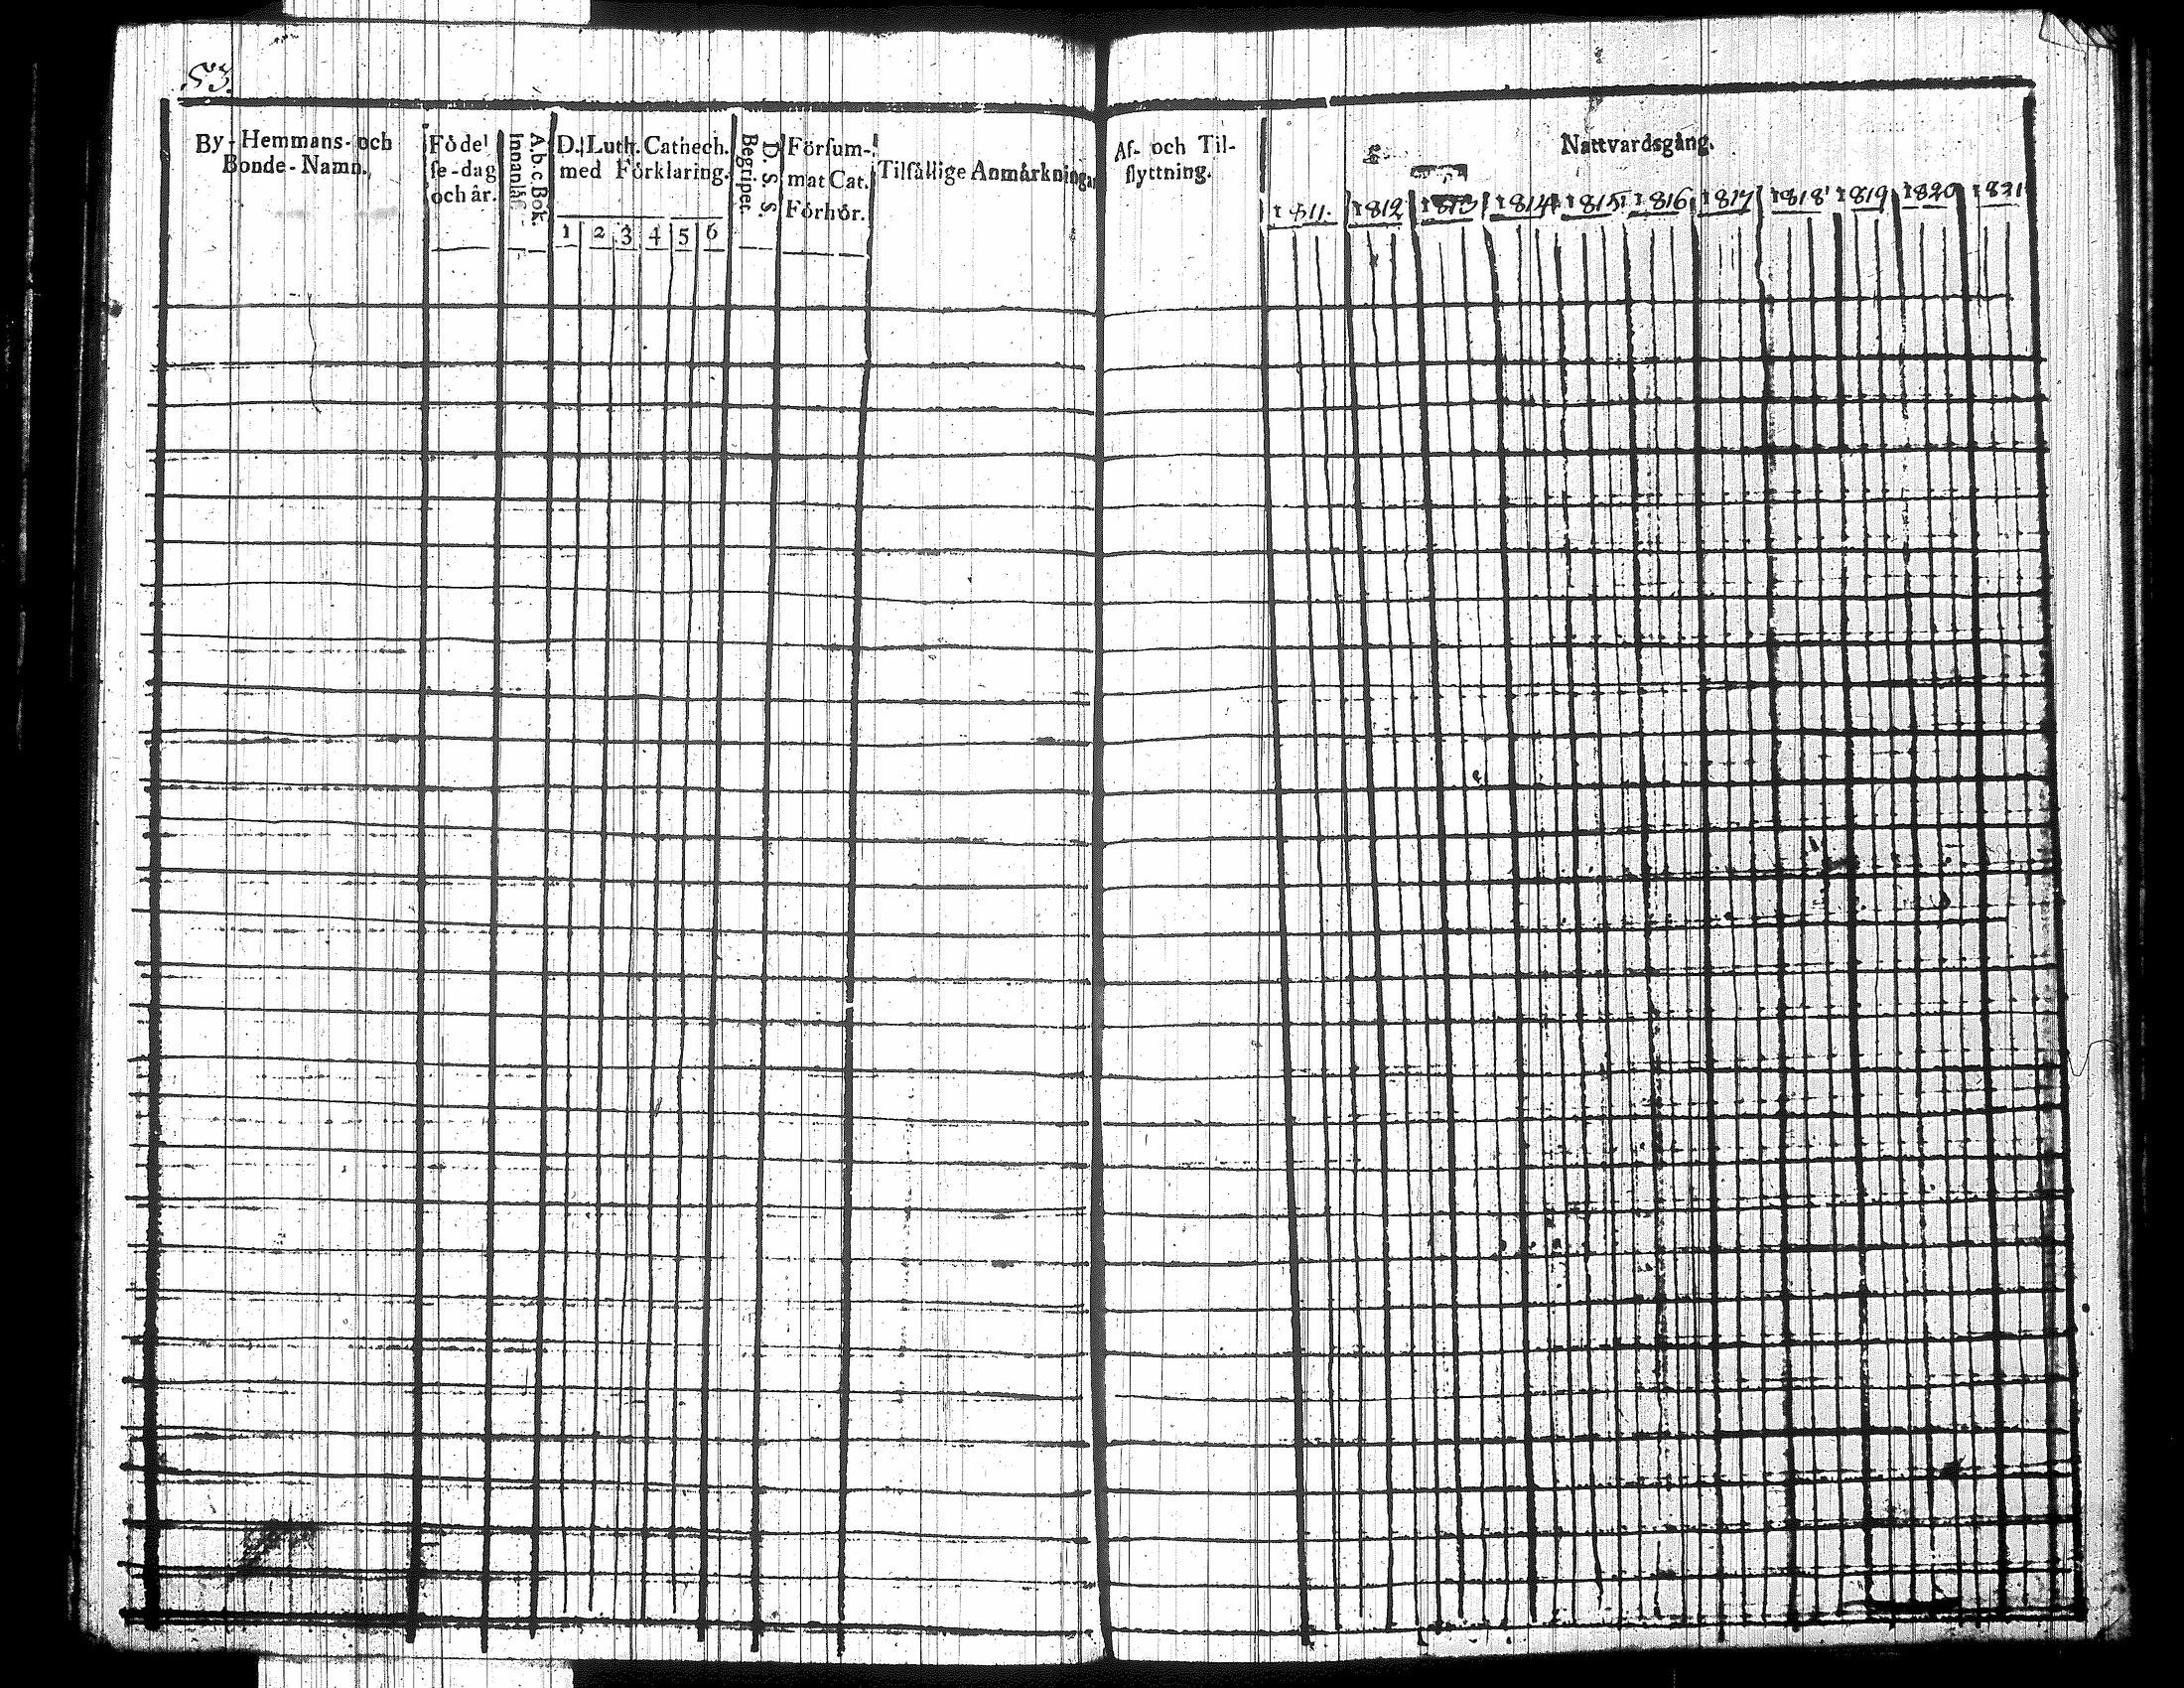 53.
By- Hemmans- och
Bonde- Namn.
Födel
ſe-dag
och år.
A.b.c.Bok.
Innanläſ
D. Luth. Cathech.
med Förklaring.
1 2 3 4 5 6
D. S. S.
Begriper.
Förſum-
mat Cat.
Förhör.
Tilfällige Anmärkningar
Af- och Til-
flyttning.
Nattvardsgång.
1811. 1812 1813 1814 1815 1816 1817 1818 1819 1820 1821